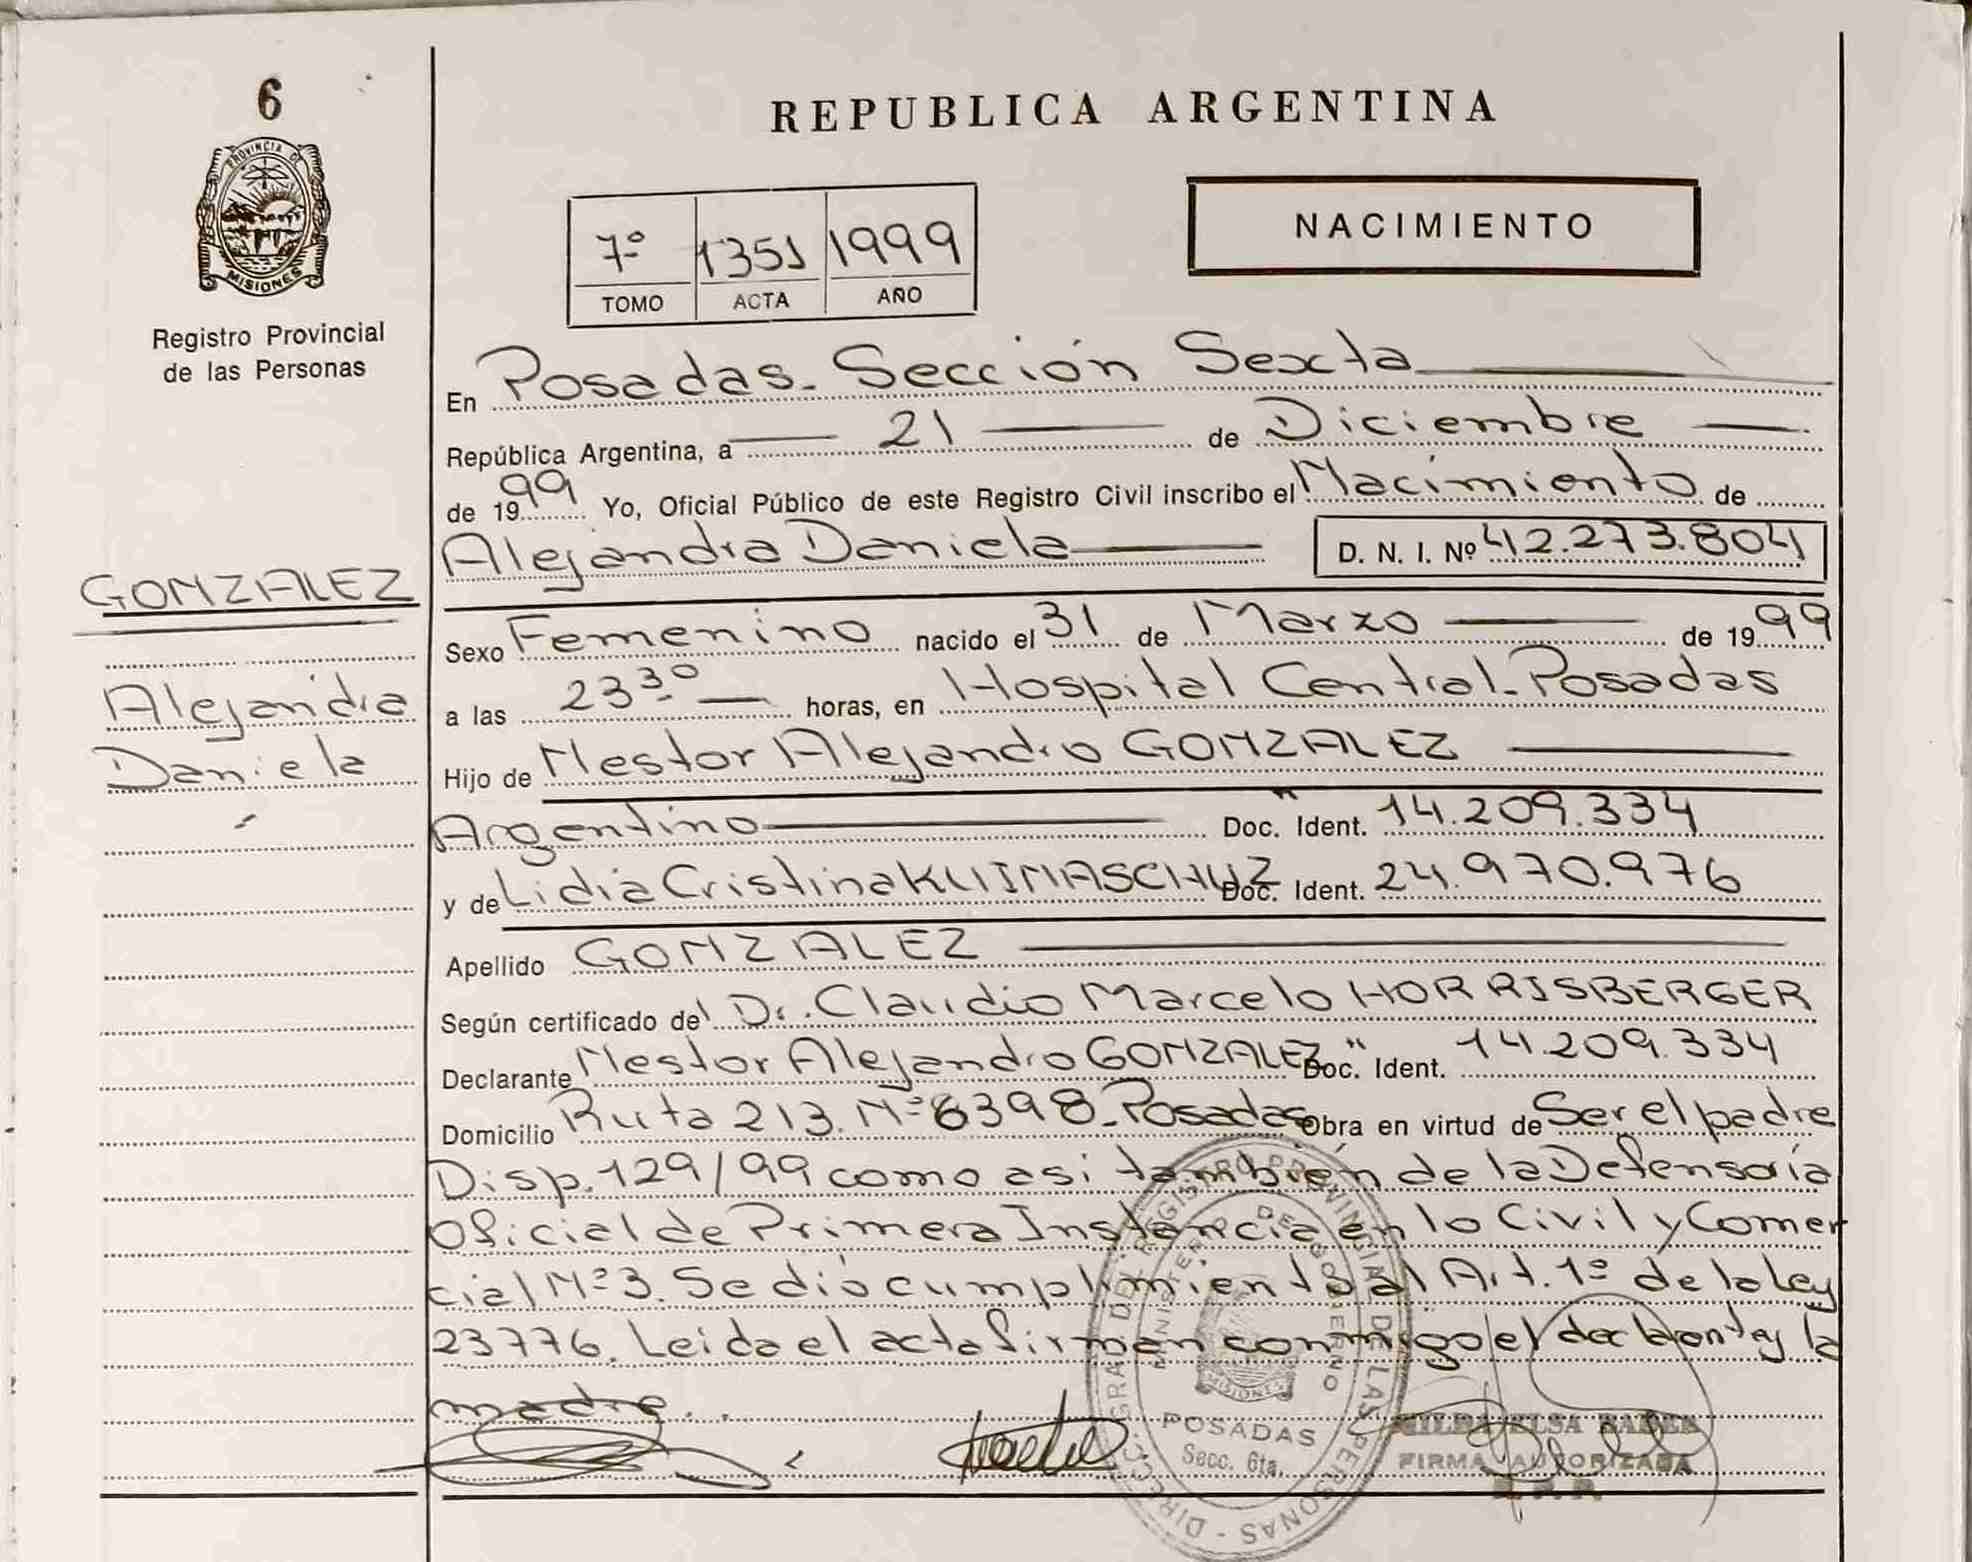 6
PROVINCIA DE
MISIONES
Registro Provincial
de las Personas
GONZALEZ
Alejandra
Daniela
REPUBLICA ARGENTINA
7º 1351 1999
TOMO ACTA AÑO
NACIMIENTO
En Posadas. Sección Sexta
República Argentina, a 21 de Diciembre
de 1999 Yo, Oficial Público de este Registro Civil inscribo el Nacimiento de
Alejandra Daniela D. N. I. Nº 42.273.804
Sexo Femenino nacido el 31 de Marzo de 1999
a las 23 30 horas, en Hospital Central. Posadas
Hijo de Nestor Alejandro GONZALEZ
Argentino Doc. Ident. 14.209.334
y de Lidia Cristina Doc. Ident. 24.970.976
Apellido GONZALEZ
Según certificado del Dr. Claudio Marcelo HORRISBERGER
Declarante Nestor Alejandro GONZALEZ Doc. Ident. 14.209.334
Domicilio Ruta 213. Nº 6398. Posadas Obra en virtud de Ser el padre
Disp. 129/99 como asi también de la Defensoría
Oficial de Primera Instancia en lo Civil y Comer
cial Nº 3. Se dió cumplimiento al Art. 1º de la Ley
23776. Leida el acta firman conmigo el declarante y la
madre.
DIRECC. GRAL. DEL REGISTRO PROVINCIAL DE LAS PERSONAS
MINISTERIO DE GOBIERNO
MISIONES
POSADAS
Secc. 6ta.
ELSA
FIRMA AUTORIZADA